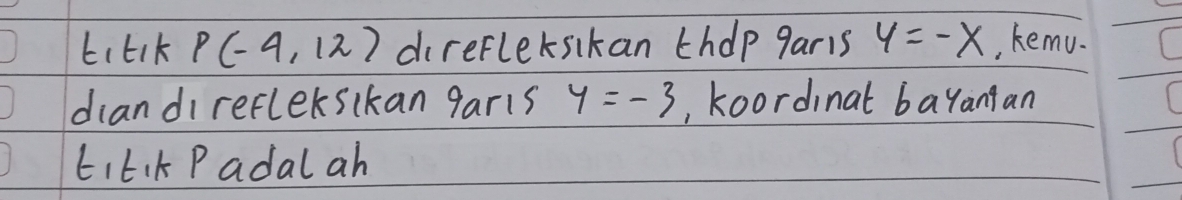 titik P(-9, 12) direfleksikan thdp garis y = -x, kemu-
dian direfleksikan garis y = -3, koordinat bayangan
titik P adalah